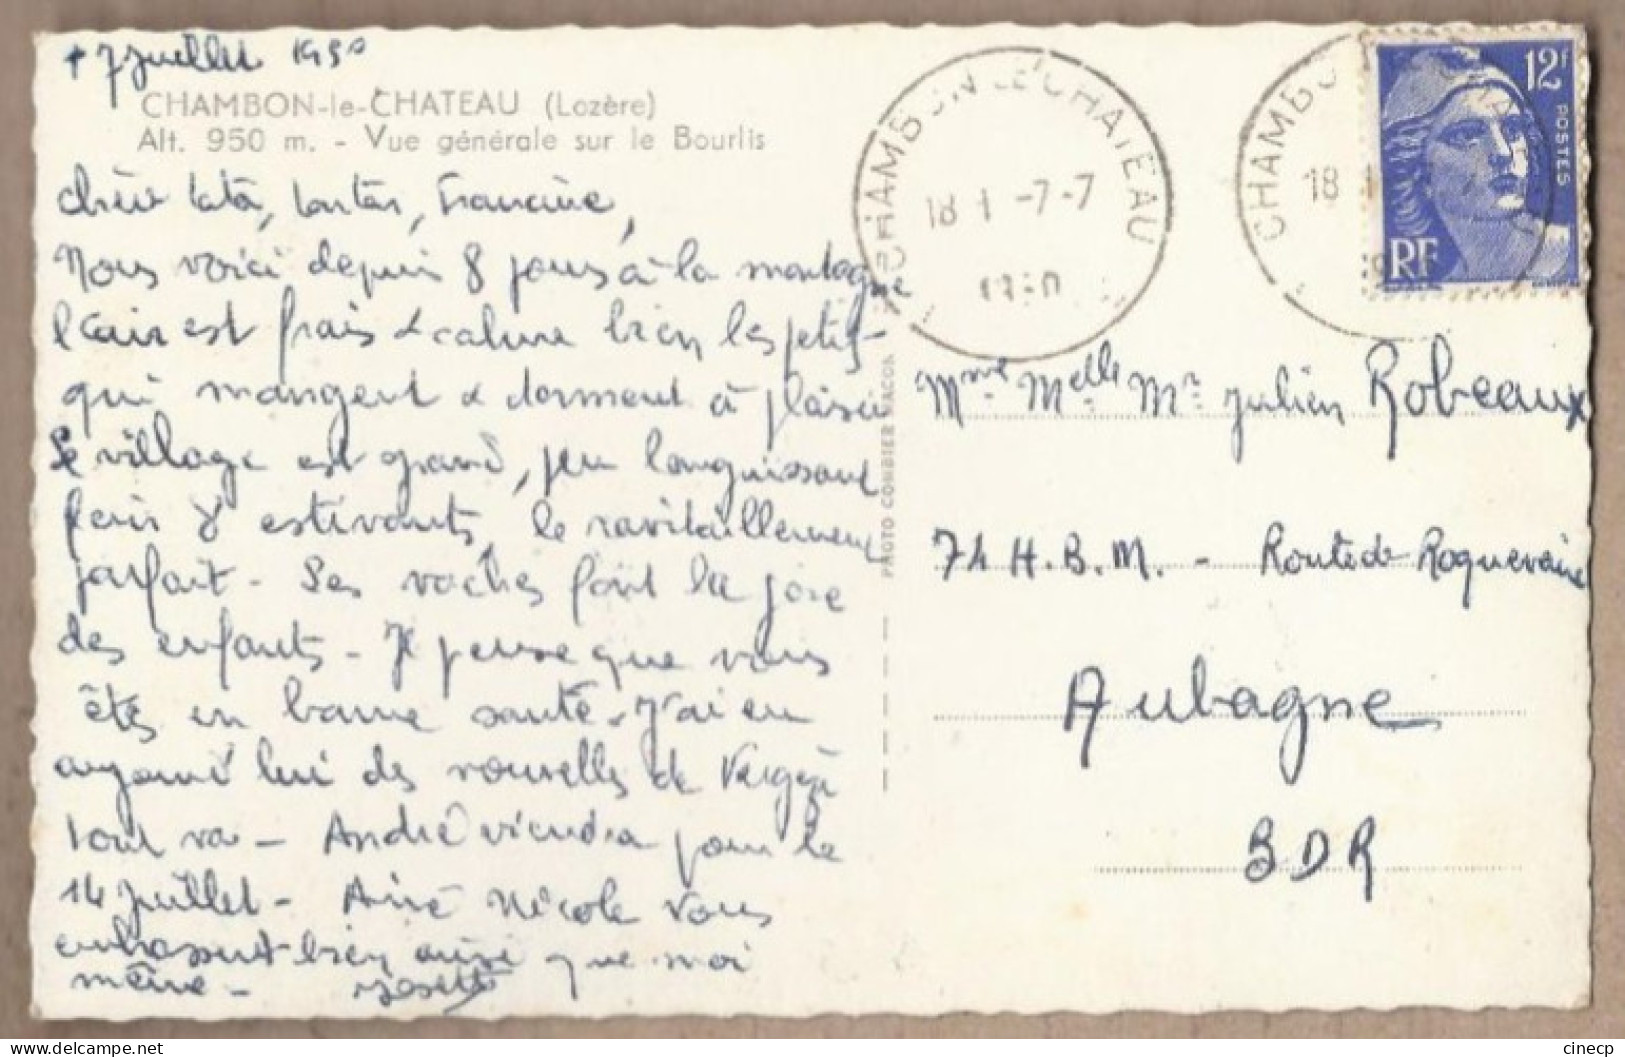 7 Juillet 1950
CHAMBON-le-CHATEAU (Lozère)
Alt. 950 m. - Vue générale sur le Bourlis
Chère tata, tonton, Francine,
Nous voici depuis 8 jours à la montagne
l'air est frais & calme bien les petits
qui mangent & dorment à plaisir
Le village est grand, peu languissant
plein d'estivants, le ravitaillement
parfait - Les vaches font la joie
des enfants - Je pense que vous
êtes en bonne santé - J'ai eu
aujourd'hui des nouvelles de
tout va - André viendra pour le
14 Juillet - Aimé Nicole vous
embrassent bien ainsi que moi
même - Josette
CHAMBON LE CHATEAU
18 -7-7
CHAMBO
18
12F
POSTES
RF
PHOTO COMBIER MACON
Mme Melle Mr Julien Robeaux
74 H.B.M. - Route de Roquevaire
Aubagne
BDR
cinecp